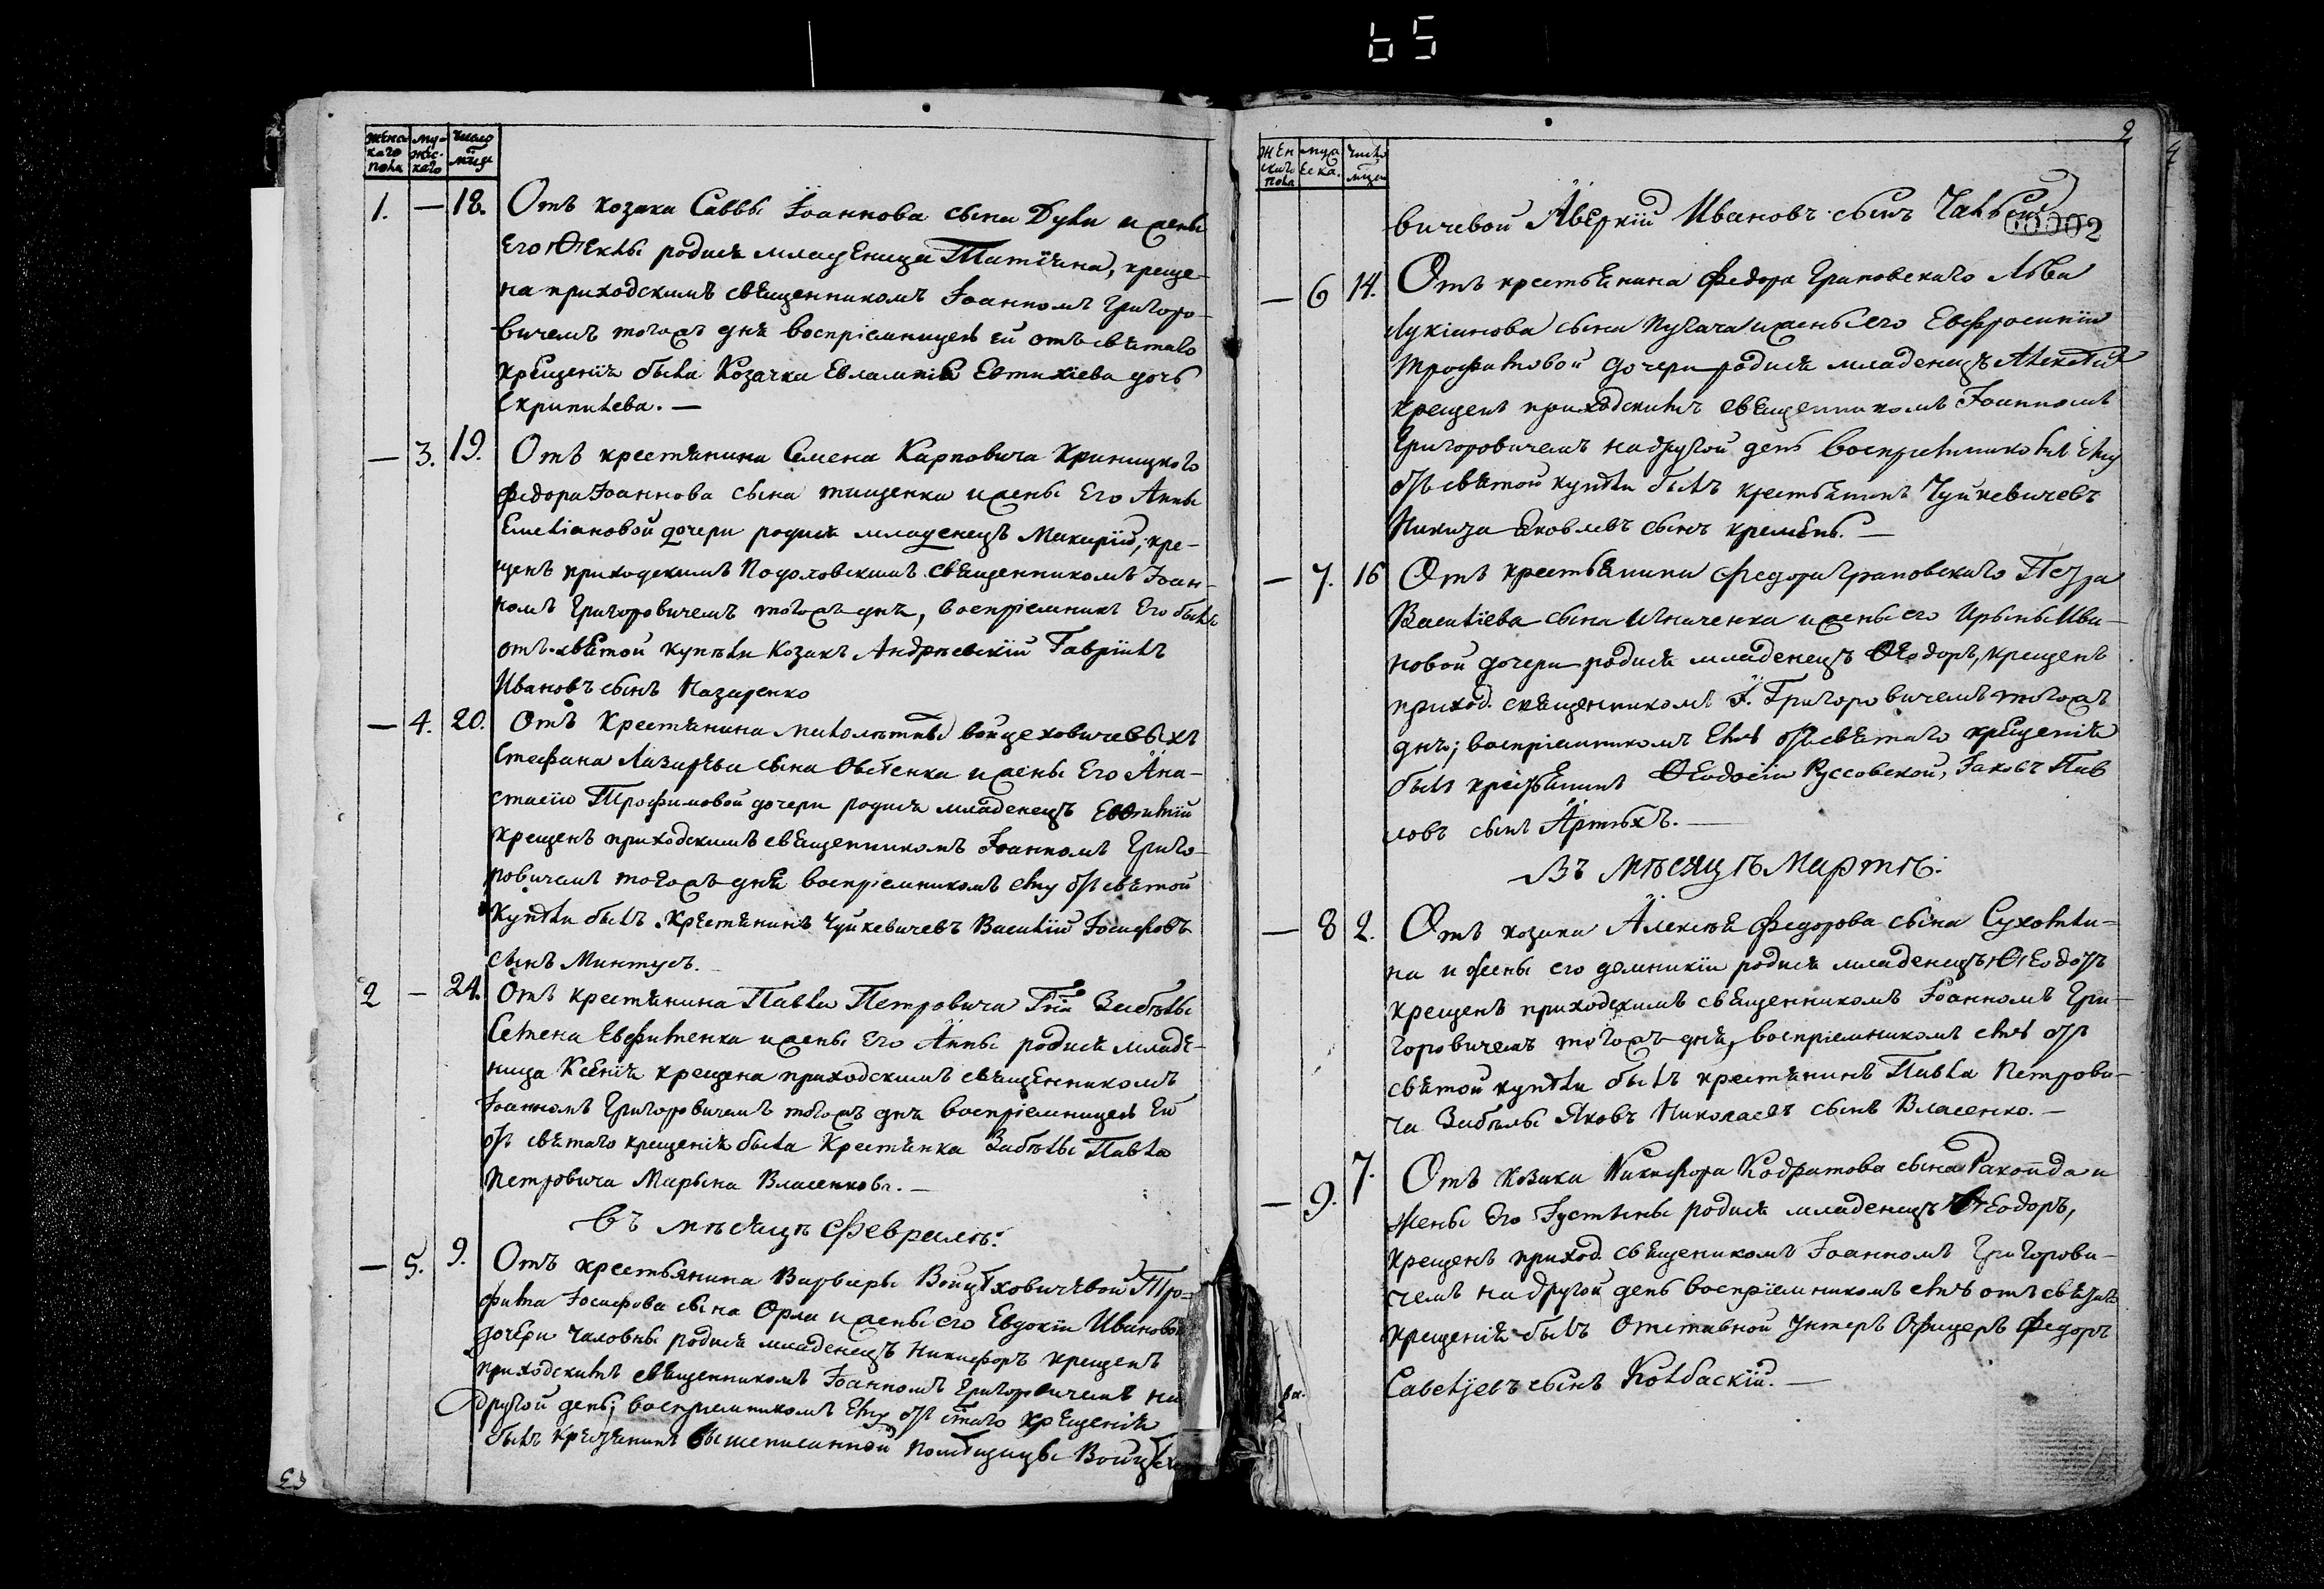 65
женс-
каго
пола
му-
жс-
каго
число
мцъ
1. — 18. Отъ козака Саввы Іоаннова сына Дули и жены
его Ѳеклы родися младеница Татіяна, креще-
на приходскимъ священникомъ Іоанномъ Григоро-
вичемъ тогожъ дня воспріемницею ей отъ святаго
крещенія была Козачка Евлампія Евтихіева дочь
Скрипилева. —
— 3. 19. Отъ крестянина Семена Карповича Криницкого
Федора Іоаннова сына тищенка и жены Его Анны
Емеліановой дочери родися младенецъ Макарій, кре-
щенъ приходскимъ Подоловскимъ священникомъ Іоан-
номъ Григоровичемъ тогожъ дня, воспріемникъ Его былъ
отъ святой купѣли Козакъ Андрѣевскій Гавріилъ
Ивановъ сынъ Назаренко
— 4. 20. Отъ Крестянина малолѣтны войцеховичевыхъ
Стефана Лазарѣва сына Овсіенка и жены Его Ана-
стасію Трофимовой дочери родися младенецъ Евѳимій
крещенъ приходскимъ священникомъ Іоанномъ Григо-
ровичемъ тогожъ дня воспріемникомъ ему отъ святой
Купѣли былъ Крестянинъ Чуйкевичевъ Василій Іосифовъ
сынъ Минтусъ.
2 — 24. Отъ крестянина Павла Петровича Гна Забѣлы
Семена Евфименка и жены Его Анны родися младе-
ница Ксенія крещена приходскимъ священникомъ
Іоанномъ Григоровичемъ тогожъ дня воспріемницею Ей
отъ святаго крещенія была Крестянка Забѣлы Павла
Петровича Марына Власенкова. —
въ мѣсяцѣ Февралѣ:
— 5. 9. Отъ крестьянина Варвары Войцѣховичѣвой Тро-
фима Іосифова сына Орла и жены его Евдокіи Ивановой
дочери родися младенецъ Никифоръ крещенъ
приходскимъ священникомъ Іоанномъ Григоровичемъ на
другой день; воспріемникомъ Ему отъ стаго крещенія
былъ крестянинъ вышеписанной помѣщицы Войцѣхо
2
жен
скаго
пола
муж
еска.
число
мцъ
вичевой Аверкій Ивановъ сынъ
00002
— 6 14. Отъ крестьянина Федора Грановскаго Льва
Лукіанова сына Пугача и жены его Евфросиніи
Трофимовой дочери родися младенецъ Алексѣй
крещенъ приходскимъ священникомъ Іоанномъ
Григоровичемъ на другой день воспріемникомъ Ему
отъ святой купѣли былъ крестьянинъ Чуйкевичевъ
Никита Яковлевъ сынъ кремень. —
— 7. 16 Отъ крестьянина Федора Грановскаго Петра
Василіева сына Илниченка и жены его Ирыны Ива-
новой дочери родися младенецъ Ѳеодоръ, крещенъ
приход. священникомъ І. Григоровичемъ тогожъ
дня; воспріемникомъ Ему отъ святаго крещенія
былъ крестьянинъ Ѳеодосіи Руссовской, Іаковъ Пав
ловъ сынъ Артюхъ. —
Въ мѣсяцѣ Мартѣ:
— 8 2. Отъ козака Алексѣя Федорова сына Сухомли-
на и жены его домникіи родися младенецъ Ѳеодотъ
крещенъ приходскимъ священникомъ Іоанномъ Гри-
горовичемъ тогожъ дня, воспріемникомъ ему отъ
святой купѣли былъ крестянинъ Павла Петрови-
ча Забѣлы Яковъ Николаевъ сынъ Власенко. —
— 9. 7. Отъ козака Никифора Кодратова сына и
жены Его Іустины родися младенецъ Ѳеодоръ,
крещенъ приход. священикомъ Іоанномъ Григорови-
чемъ на другой день воспріемникомъ ему отъ святаго
крещенія былъ Отставной Унтеръ Офицеръ Федоръ
Савелѣевъ сынъ Колбаскій. —